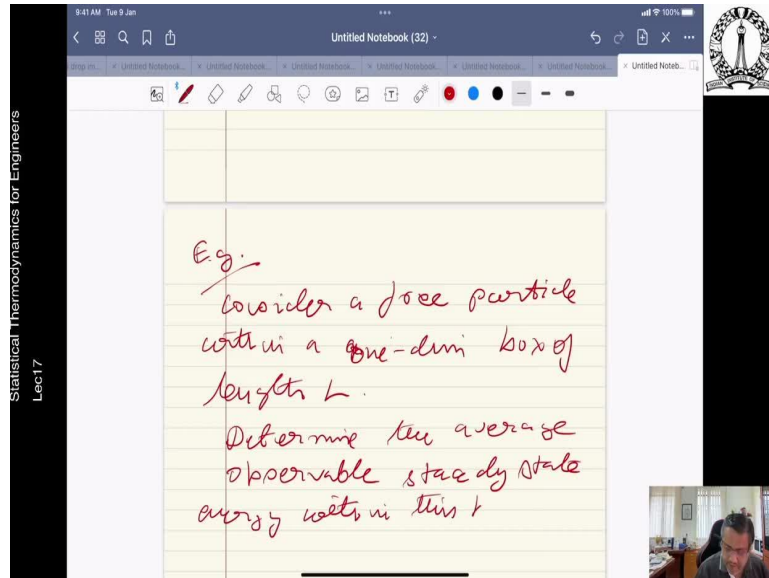 9:41 AM Tue 9 Jan
100%
Untitled Notebook (32)
drop m...
Untitled Notebook...
Untitled Notebook...
Untitled Notebook...
Untitled Notebook...
Untitled Notebook...
Untitled Noteb...
Statistical Thermodynamics for Engineers
Lec17
E.g.
Consider a free particle
within a one-dim box of
length L.
Determine the average
observable steady state
energy within this